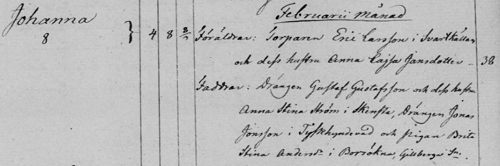 Februarii Månad
Johanna
8
4 8
Föräldrar: Torparen Eric Larsson i Svartkällan
och dess hustru Anna Cajsa Jansdotter
38
Faddrar: Drängen Gustaf Gustafsson och dess hustru
Anna Stina Ström i Skensta, Drängen Jonas
Jonsson i och Pigan Brita
Stina Andersdr i Gillberga Sn.